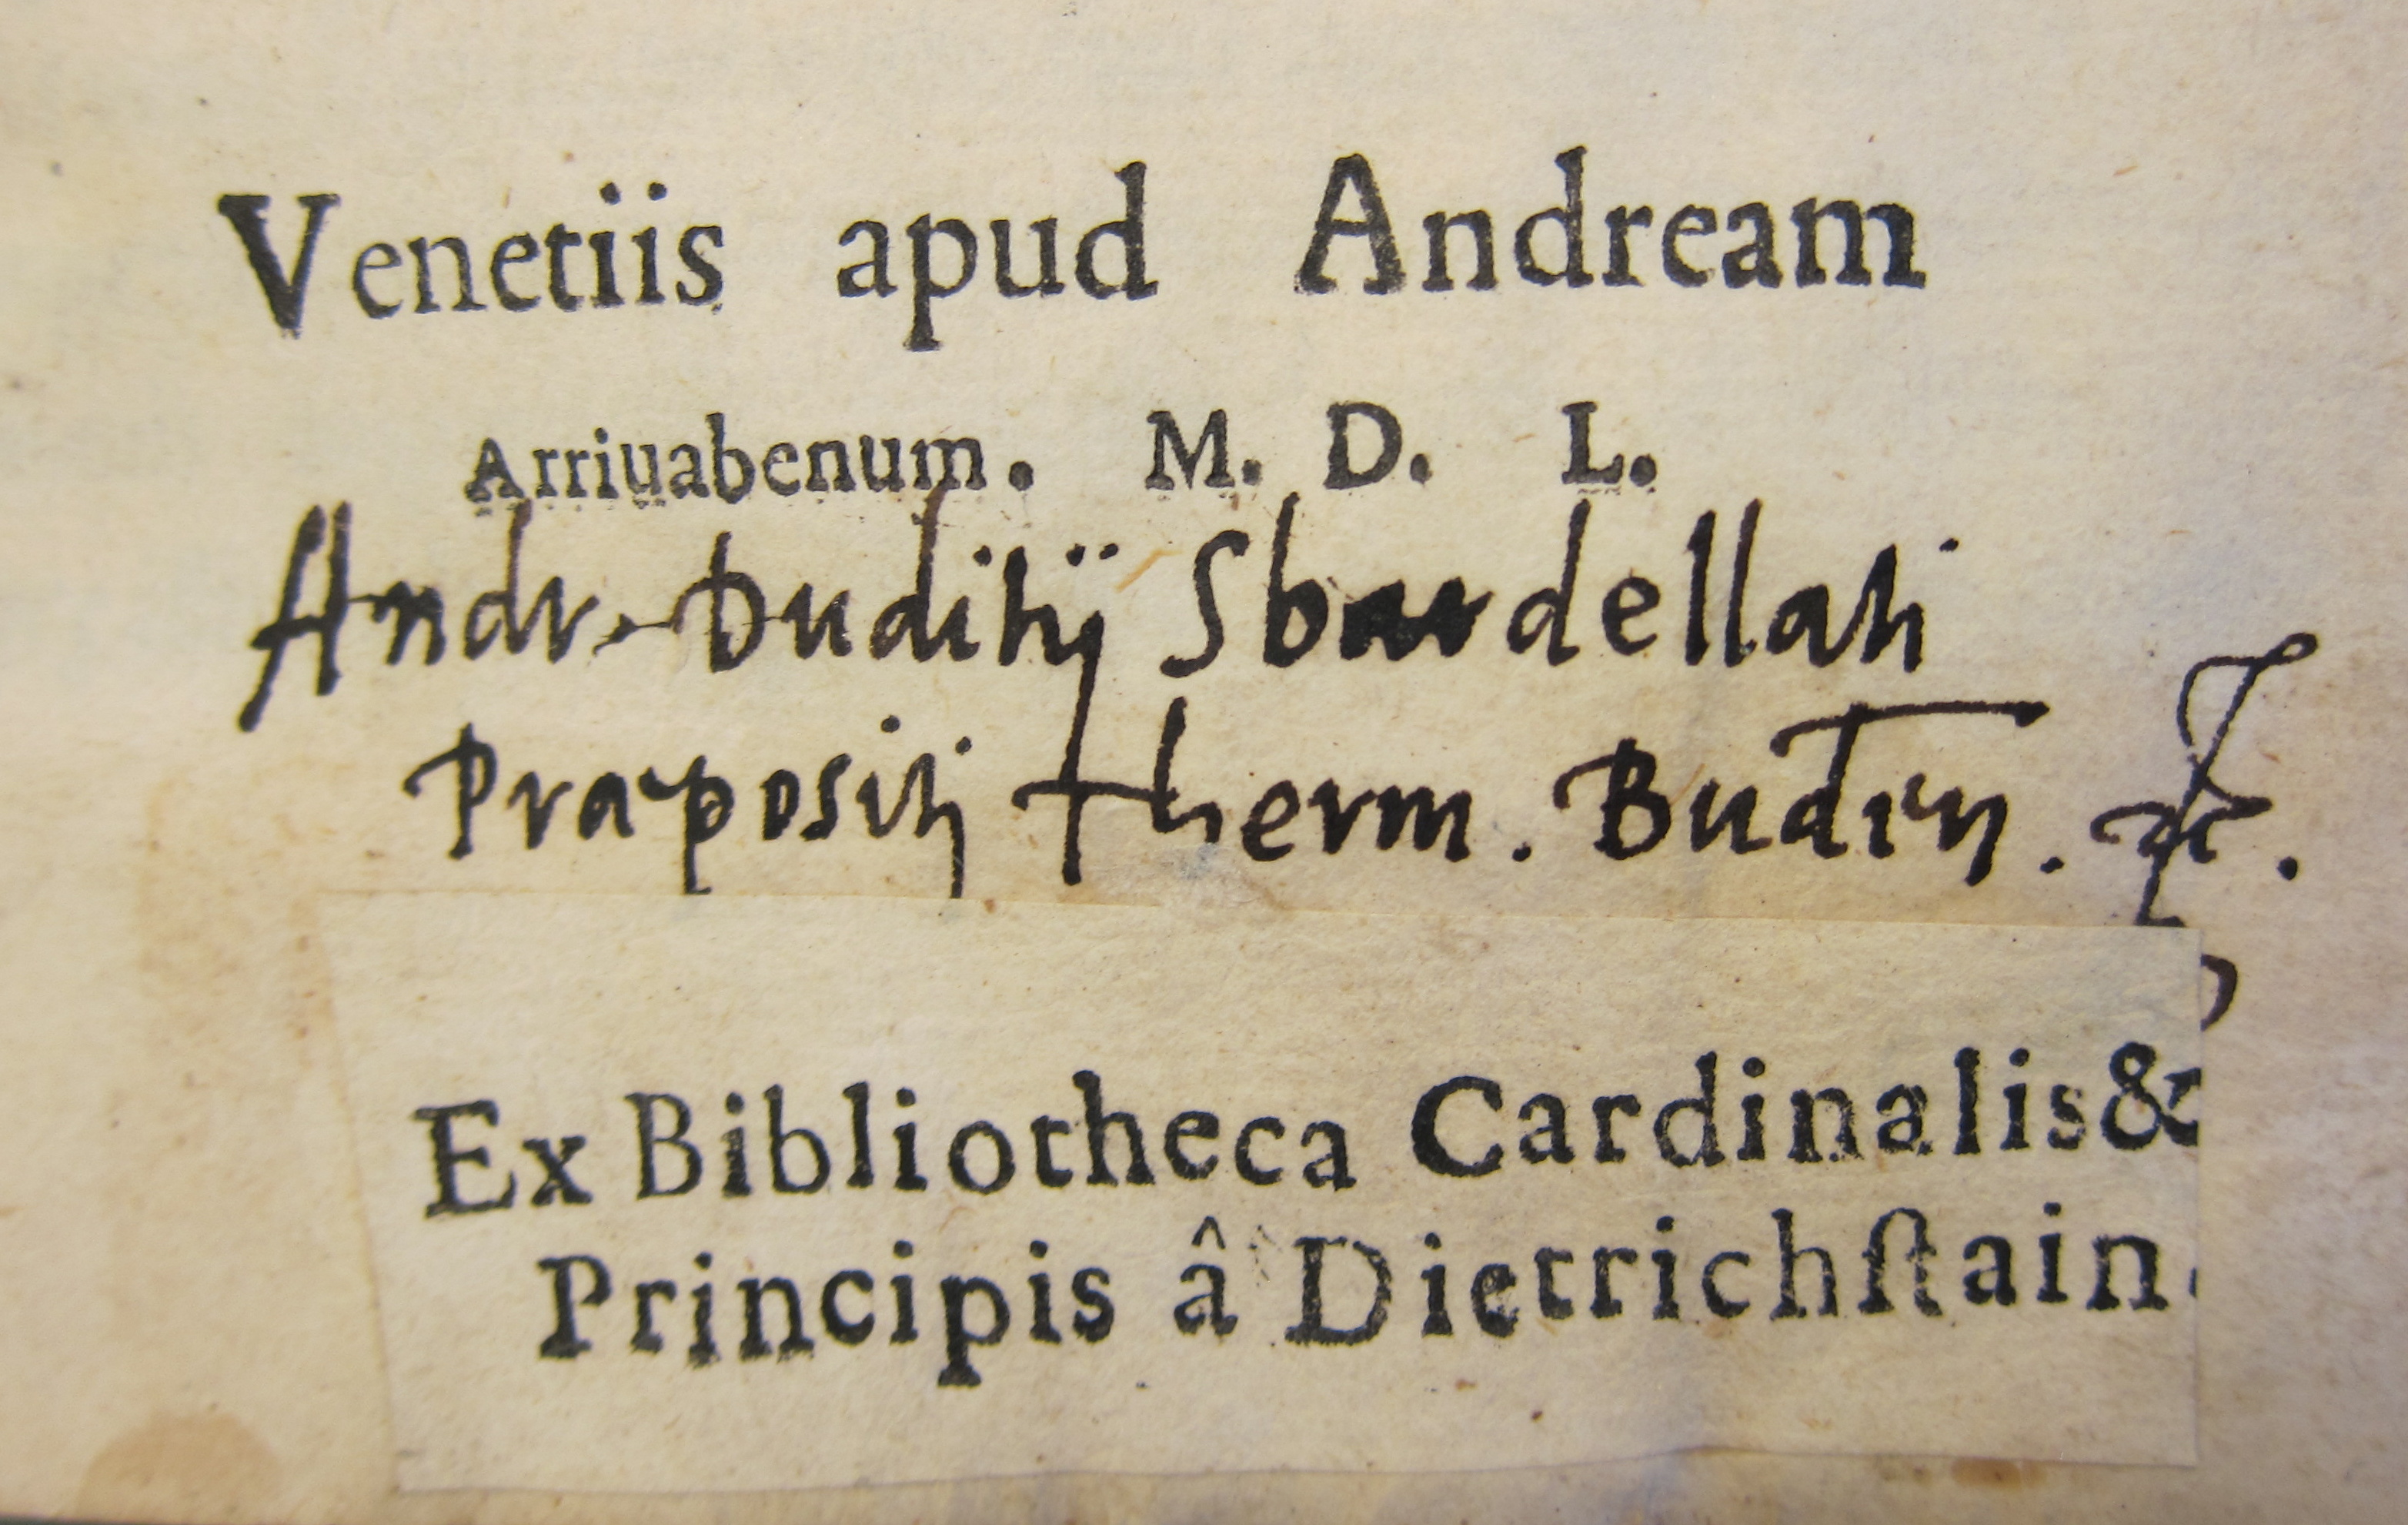 Venetiis apud Andream
Arriuabenum. M. D. L.
Andr. Duditij Sbardellati
Præpositi therm. Buden. &c.
Ex Bibliotheca Cardinalis &
Principis â Dietrichſtain.